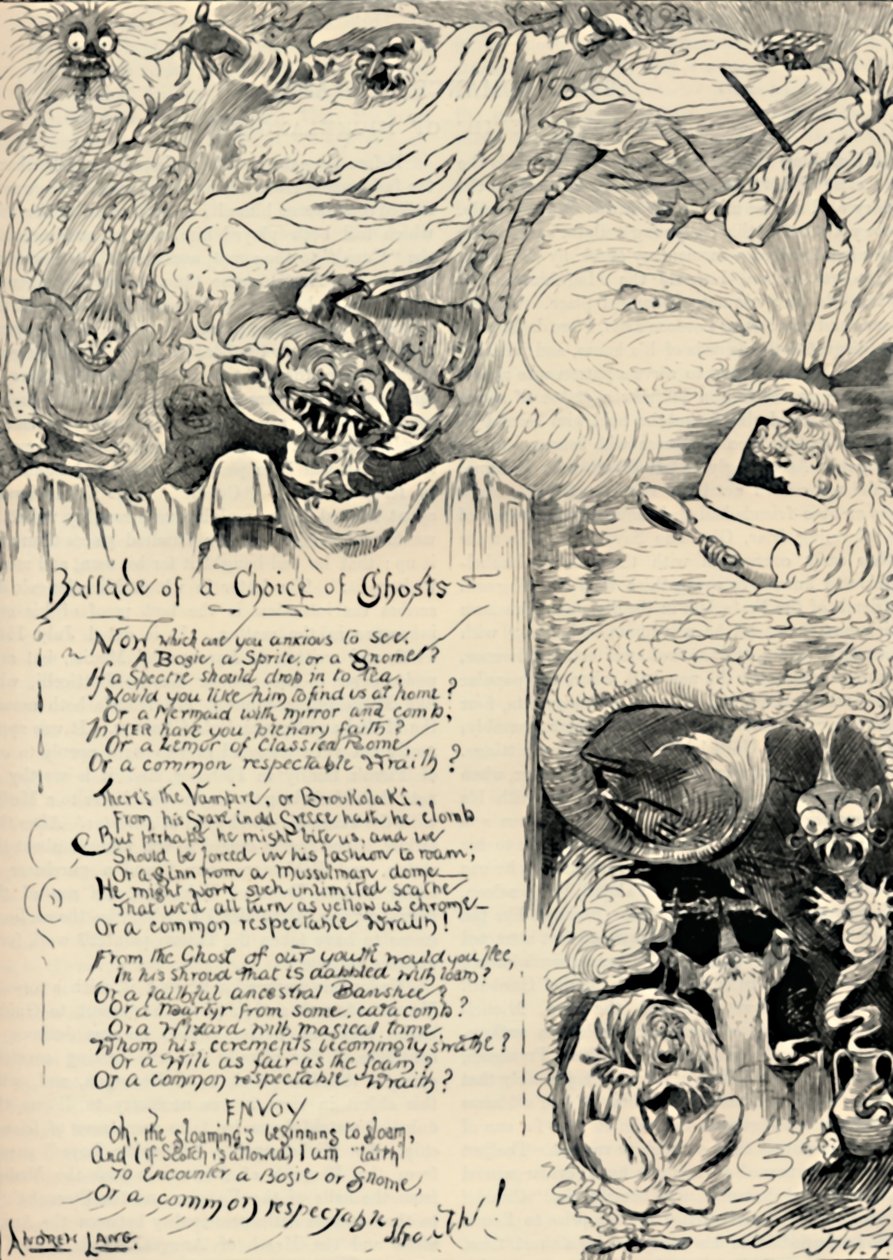 Ballade of a Choice of Ghosts
Now which are you anxious to see,
A Bogie, a Sprite, or a Gnome?
If a Spectre should drop in to tea,
Would you like him to find us at home?
Or a Mermaid with mirror and comb;
In HER have you plenary faith?
Or a Lemur of Classical Rome,
Or a common respectable Wraith?
There's the Vampire, or Broukolaki,
From his Grave in old Greece hath he clomb
But perhaps he might bite us, and we
Should be forced in his fashion to roam;
Or a Ginn from a Mussulman dome—
He might work such unlimited scathe
That we'd all turn as yellow as chrome—
Or a common respectable Wraith!
From the Ghost of our youth would you flee,
In his shroud that is dabbled with loam?
Or a faithful ancestral Banshee?
Or a Martyr from some catacomb?
Or a Wizard with magical tome,
Whom his cerements becomingly swathe?
Or a Wili as fair as the foam?
Or a common respectable Wraith?
ENVOY
Oh, the gloaming's beginning to gloam,
And (if Scotch is allowed) I am "laith"
To encounter a Bogie or Gnome,
Or a common respectable Wraith!
ANDREW LANG.
Hy.